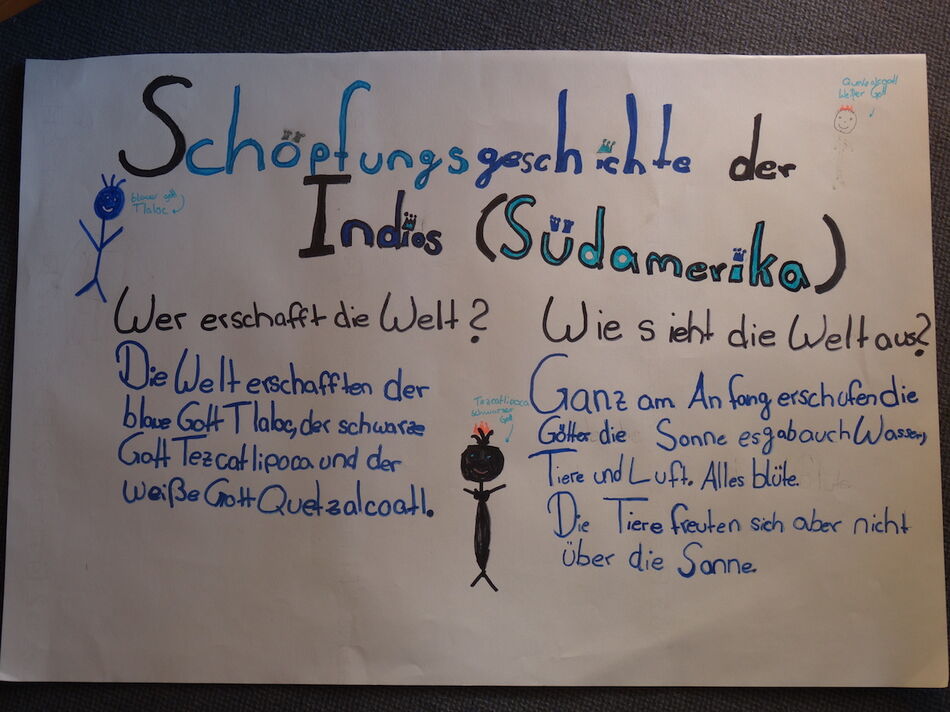 Schöpfungsgeschichte der
Indios (Südamerika)
Quetzalcoatl
Weißer Gott
blauer Gott
Tlaloc
Wer erschafft die Welt?
Die Welt erschafften der
blaue Gott Tlaloc, der schwarze
Gott Tezcatlipoca und der
weiße Gott Quetzalcoatl.
Tezcatlipoca
schwarzer
Gott
Wie sieht die Welt aus?
Ganz am Anfang erschufen die
Götter die Sonne es gab auch Wasser,
Tiere und Luft. Alles blüte.
Die Tiere freuten sich aber nicht
über die Sonne.